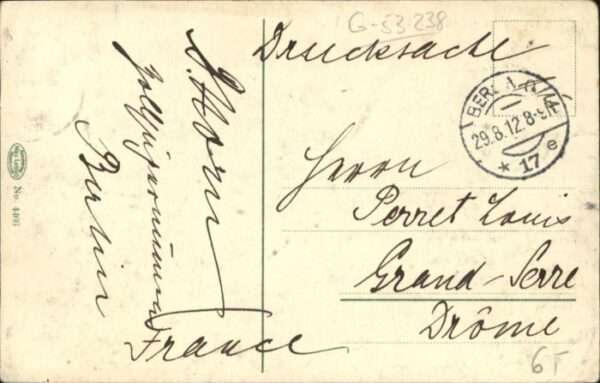 G-53238
Drucksache
BERLIN
29.8.12.8-9
* 17 e
Herrn
Perret Louis
Grand-Serre
Drôme
France
Horn
Berlin
No.
6